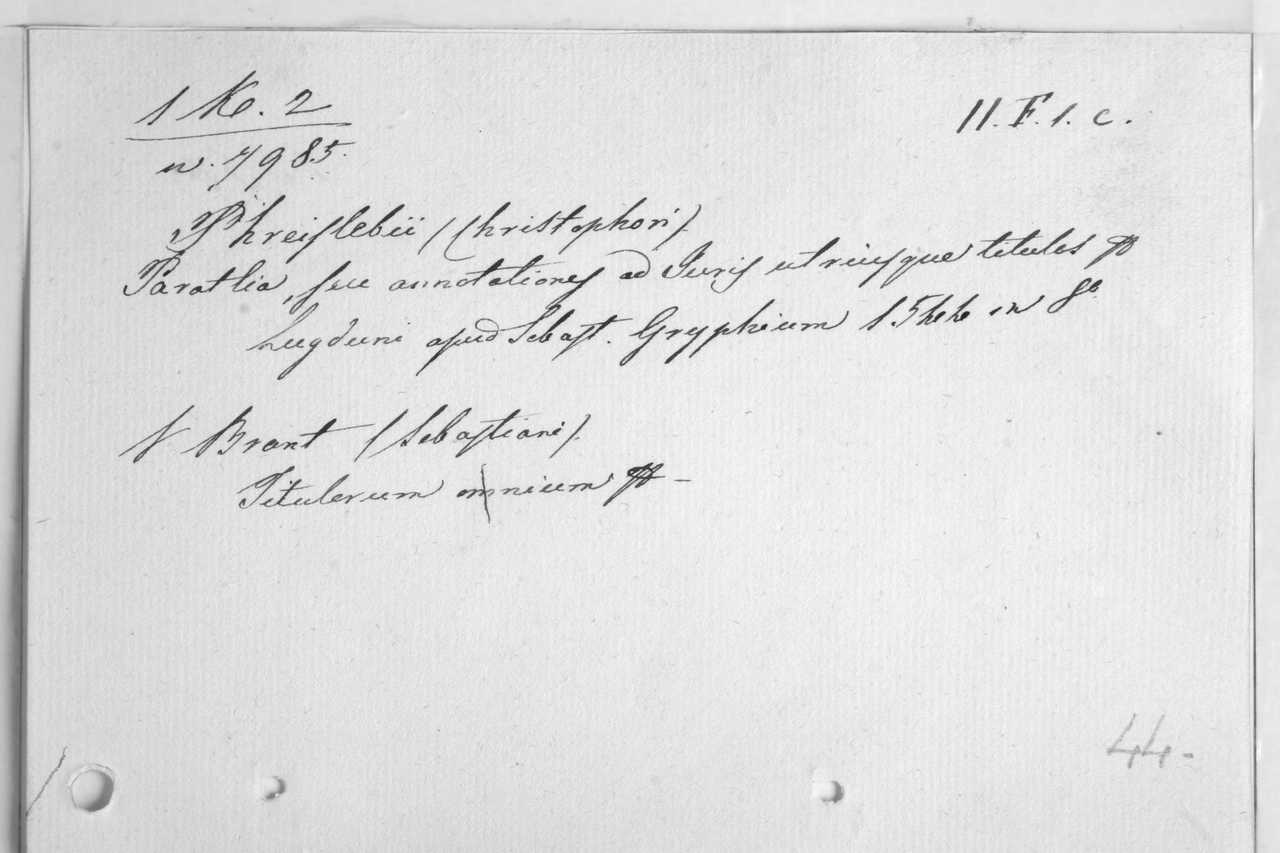 1 K. 2
n. 7985.
II. F. 1. c.
Phreislebii (Christophori).
Paratlia, seu annotationes ad Juris utriusque titulos
Lugduni apud Sebast. Gryphium 1544 in 8º.
V Brant (Sebastiani).
Titulorum omnium
44.